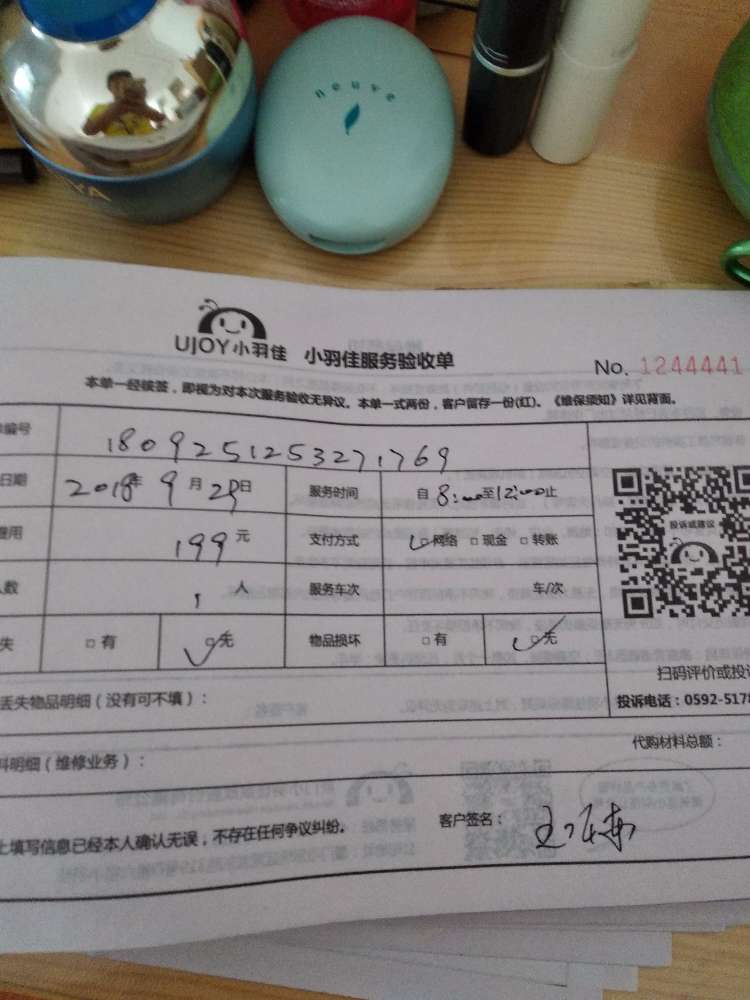 neuve
YA
UJOY小羽佳 小羽佳服务验收单
No. 1244441
本单一经核签，即视为对本次服务验收无异议。本单一式两份，客户留存一份(红)。《维保须知》详见背面。
编号 180925125327 1769
日期 2018年 9 月 29日 服务时间 自 8:00至12:00止
费用 199 元 支付方式 □网络 □现金 □转账
人数 1 人 服务车次 车/次
失 □有 □无 物品损坏 □有 □无
投诉或建议
扫码评价或投诉
丢失物品明细（没有可不填）：
投诉电话：0592-5178
代购材料总额：
料明细（维修业务）：
上填写信息已经本人确认无误，不存在任何争议纠纷。 客户签名：